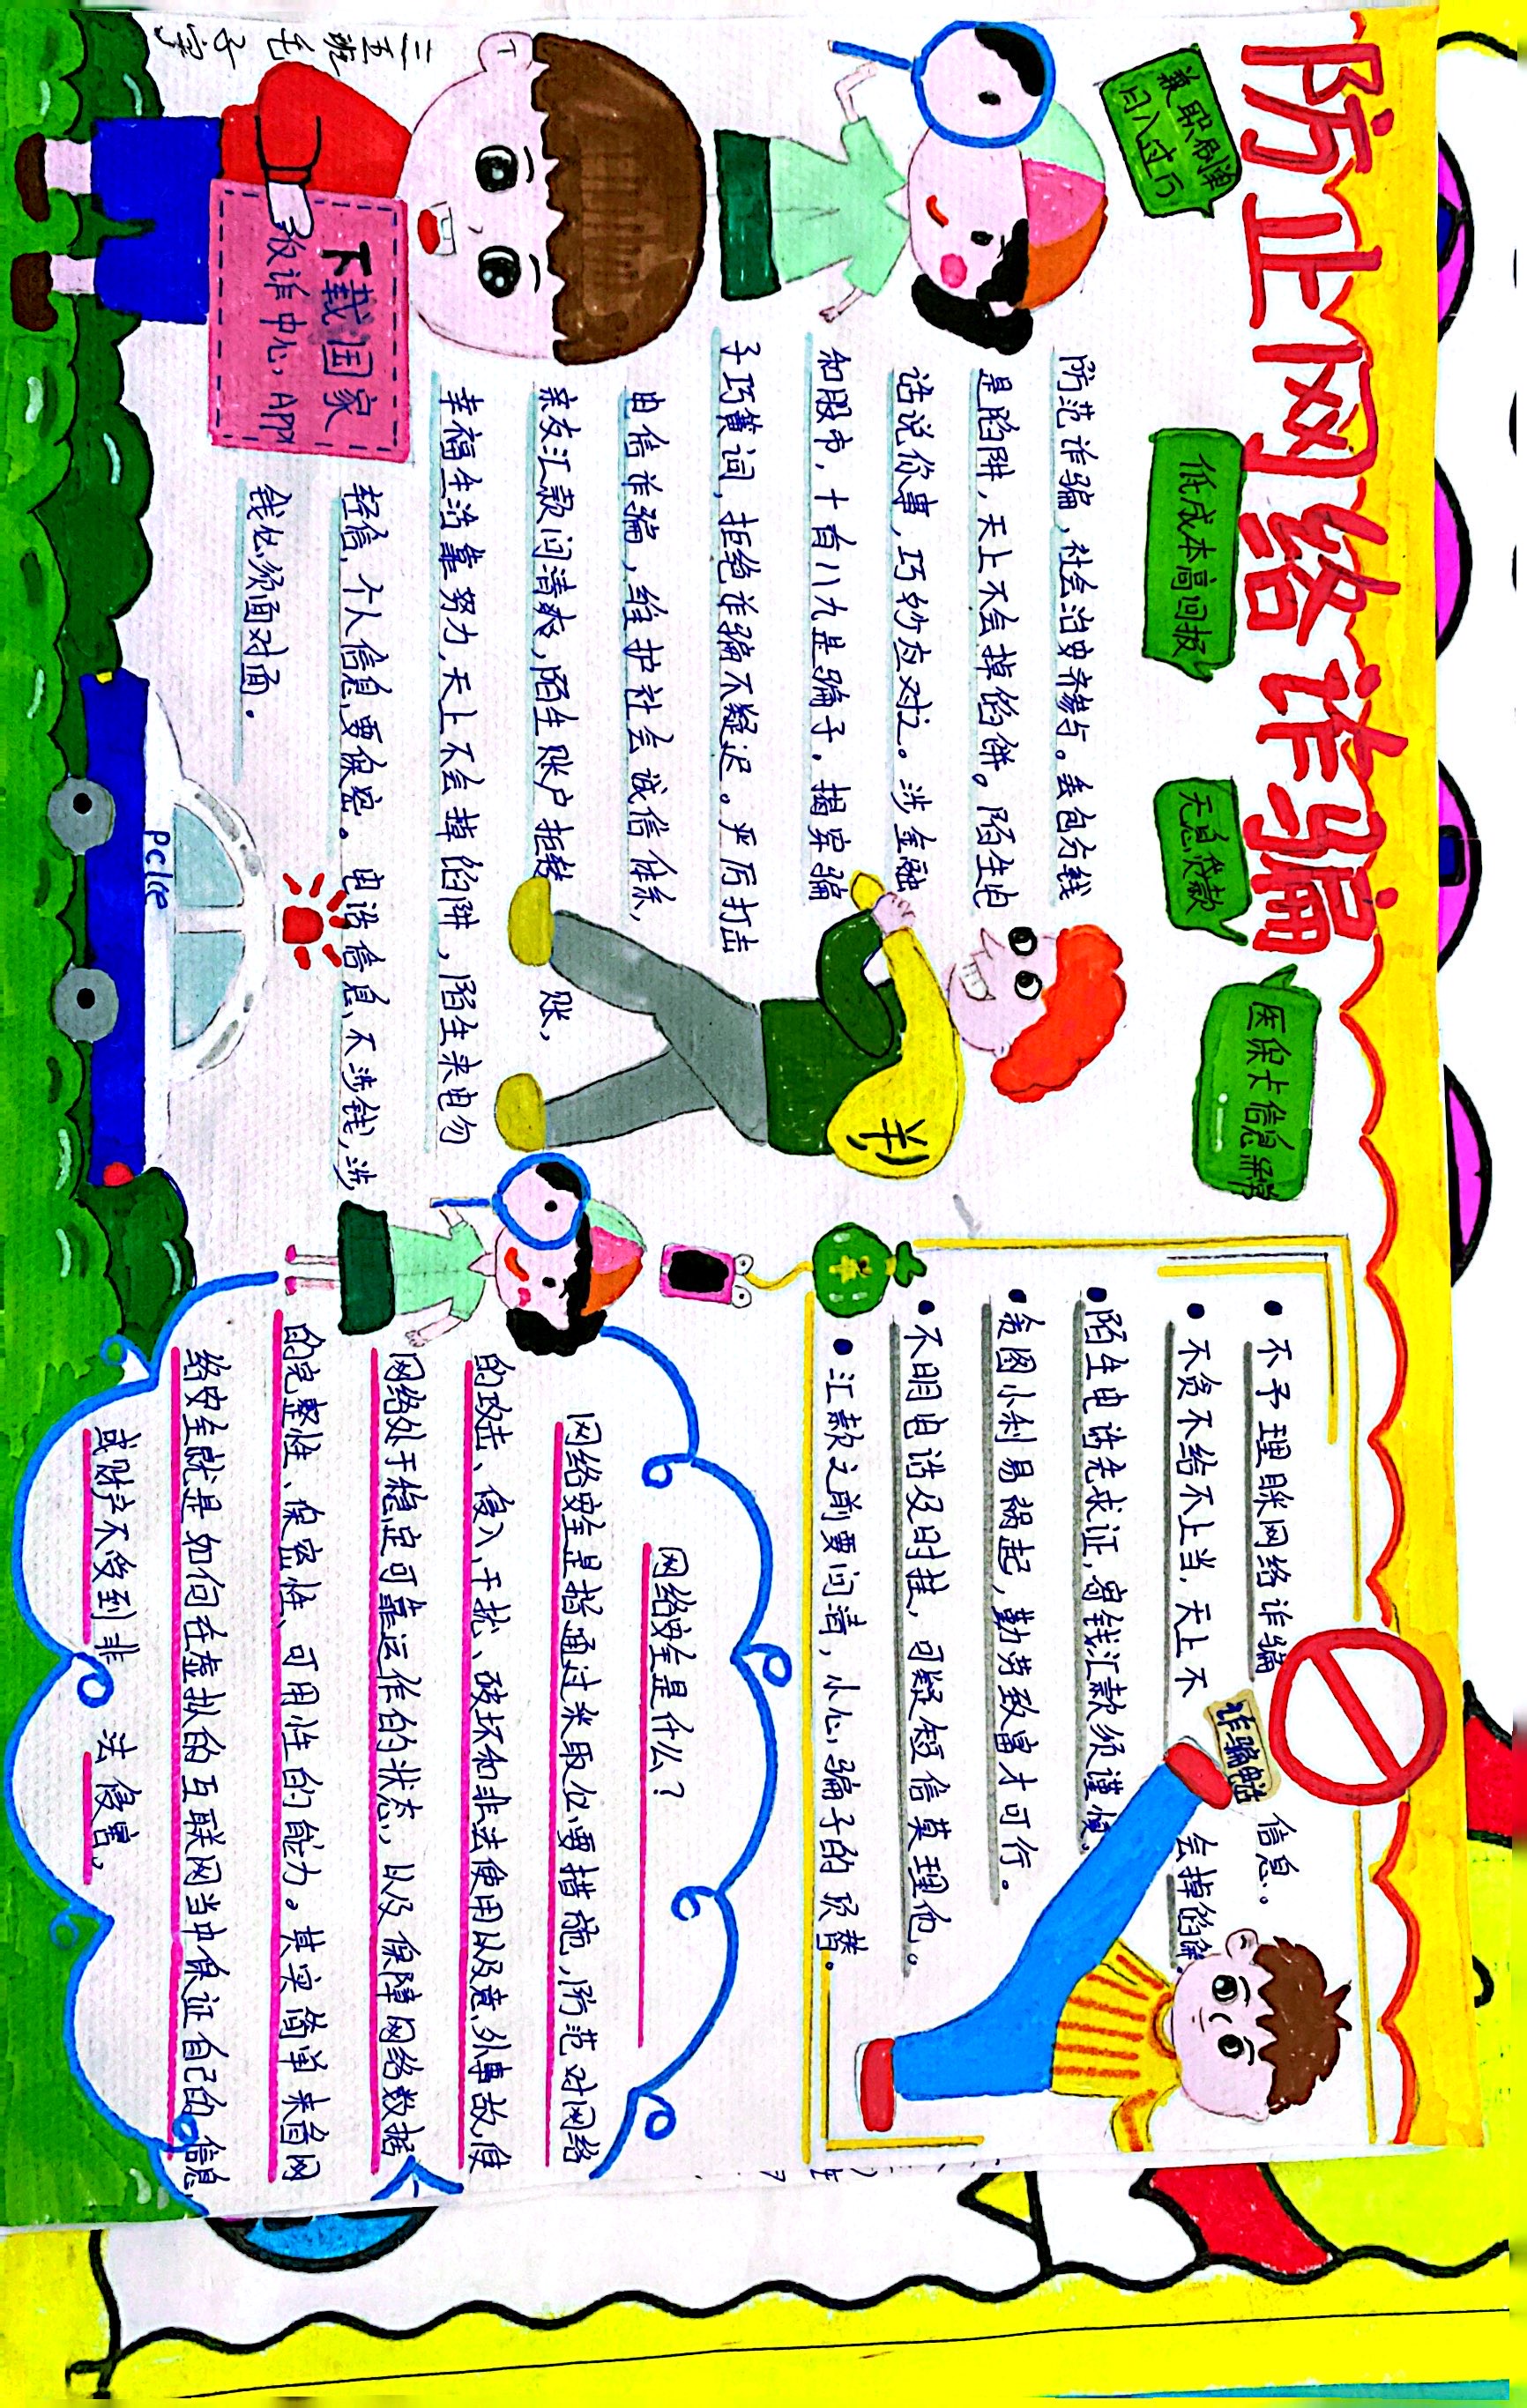 防止网络诈骗
兼职刷单
日入过万
低成本高回报
无息贷款
医保卡信息异常
防范诈骗,社会治安齐参与。丢包分钱
是陷阱,天上不会掉馅饼。陌生电
话说你事,巧妙应对之。涉金融
和股市,十有八九是骗子。揭穿骗
子巧簧词,拒绝诈骗不疑迟。严厉打击
电信诈骗,维护社会诚信体系,
亲友汇款问清爽,陌生账户拒转账,
幸福生活靠努力,天上不会掉馅饼,陌生来电勿
轻信,个人信息要保密。电话信息不涉钱,涉
钱必须面对面。
下载国家
反诈中心APP
三五班
Pclce
不予理睬网络诈骗信息。
诈骗电话
不贪不给不上当,天上不会掉馅饼。
陌生电话先求证,寄钱汇款须谨慎。
贪图小利易祸起,勤劳致富才可行。
不明电话及时挂,可疑短信莫理他。
汇款之前要问清,小心骗子的
网络安全是什么?
网络安全是指通过采取必要措施,防范对网络
的攻击、侵入、干扰、破坏和非法使用以及意外事故,使
网络处于稳定可靠运作的状态,以及保障网络数据
的完整性、保密性、可用性的能力。其实简单来看网
络安全就是如何在虚拟的互联网当中保证自己的信息
或财产不受到非法侵害。